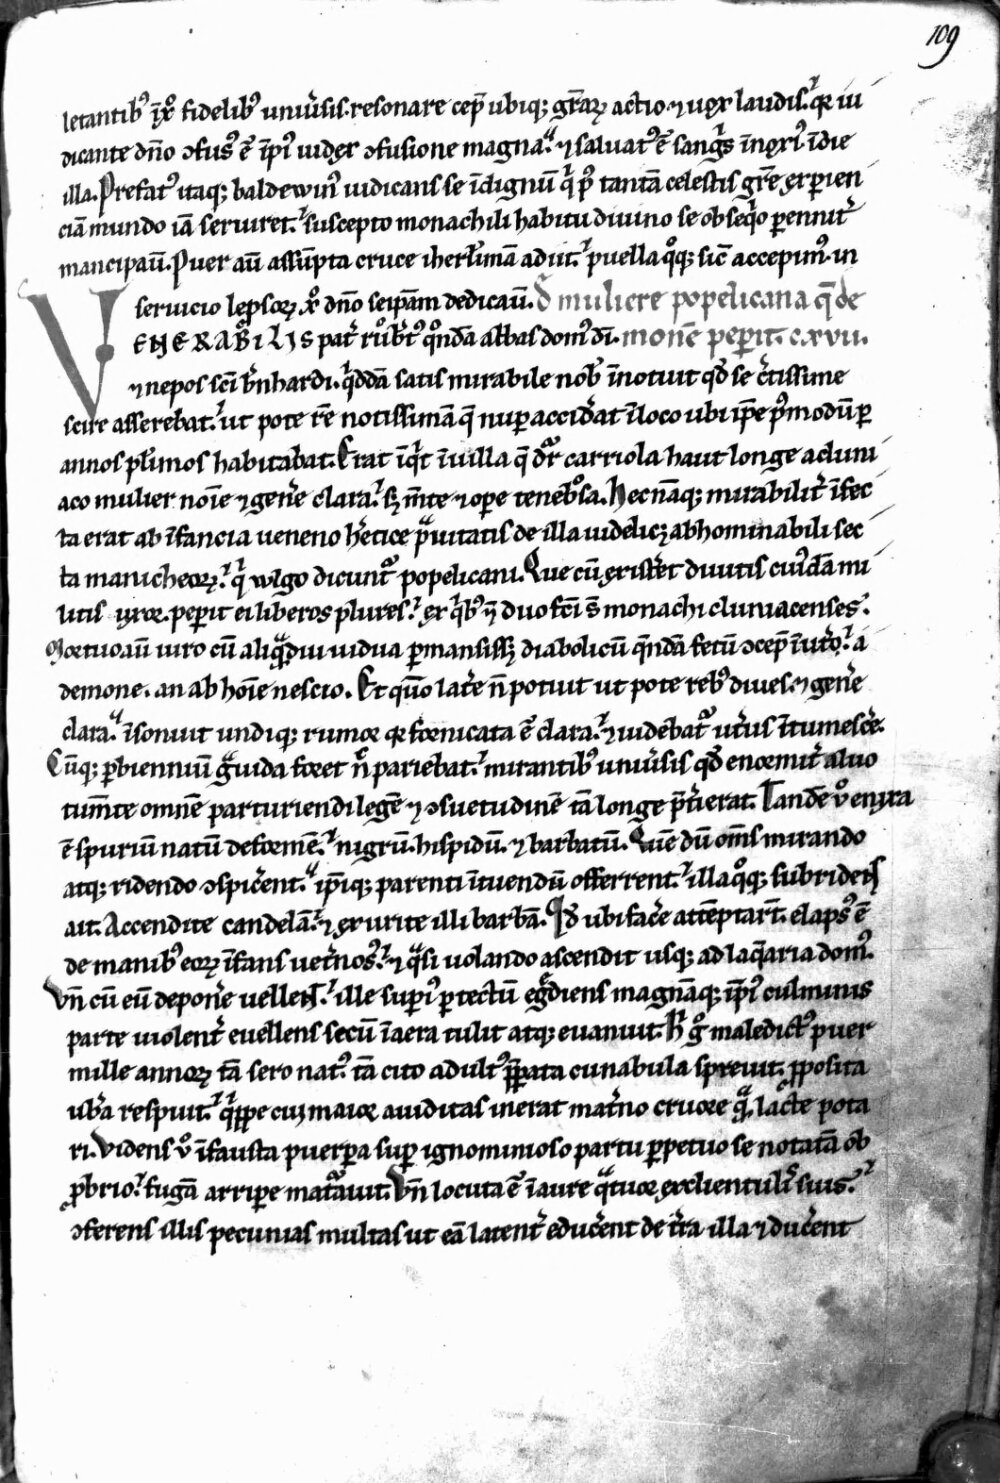 109
letantib᷒ ī xp̄o fidelib᷒ uniu͛sis. resonare cep̄ ubiq; gr̄aꝝ actio ⁊ uox laudis. qr iu
dicante dn̄o ↄfus᷒ ē īpi᷒ uidex ↄfusione magna. ⁊ saluat᷒ ē sanguis īnoxi᷒ ī die
illa. Prefat᷒ itaq; baldewin᷒ iudicans se īdignū qi p᷒ tantā celestis gr̄e experien
ciā mundo iā seruiret. suscepto monachili habitu diuino se obseqio ꝑenniť
mancipauͭ. Puer aū assūpta cruce iherl̄imā adiit. puella qoq; sic̄ accepim᷒. in
seruicio lep̄soꝝ xp̄o dn̄o seip̄am dedicauͭ. D̄ muliere popelicana q̄ de
VENERABILIS pať rob̄t᷒ qondā abbas dom᷒ dī. monē peꝑit. c.xvii.
⁊ nepos sc̄i b̄nhardi. qiddā satis mirabile nob̄ īnotuit qd̄ se c͛tissime
scire asserebat. ut pote rē notissimā q̄ nuꝑ accid͛at ī loco ubi ip̄e p᷒modū ꝑ
annos pl̄imos habitabat. Erat īqit ī uilla q̄ dr̄ carriola haut longe a cluni
aco mulier noīe ⁊ gen͛e clara. sꝫ m̄te ⁊ oꝑe teneb̄osa. Hec nāq; mirabiliť īfec
ta erat ab īfancia ueneno h͛etice prauitatis de illa uidelicꝫ abhominabili sec
ta manicheoꝝ. qi wlgo dicunť popelicani. Que cū exist͛et diuitis cui᷒dā mi
litis uxor. peꝑit ei liberos plures. ex qib᷒ ⁊ duo fc̄i s̄ monachi cluniacenses.
Mortuo aū uiro cū aliqdiu uidua ꝑmansissꝫ diabolicū qndā fetū ↄcep̄ ī ut͛o. a
demone. an ab hoīe nescio. Et qm̄o late͛ n̄ potuit ut pote reb᷒ diues. ⁊ gen͛e
clara. īsonuit undiq; rumor qr fornicata ē clara. ⁊ uidebať ut͛us ītumesc͛e.
Cūq; ꝑ bienniū grauida foret n̄ pariebat. mirantib᷒ uniu͛sis qd̄ enormiť aluo
tum̄te omnē parturiendi legē ⁊ ↄsuetudinē tā longe p̄t͛ierat. Tandē uo enixa
ē spuriū natū deformē. nigrū. hispidū. ⁊ barbatū. Quē dū om̄s mirando
atq; ridendo ↄspic͛ent. ip̄iq; parenti ītuendū offerrent. illa qoq; subridens
ait. Accendite candelā. ⁊ exurite illi barbā. Id̄ ubi fac͛e attēptar̄t. elaps᷒ ē
de manib᷒ eoꝝ īfans uet͛nos᷒. ⁊ qsi uolando ascendit usq; ad laq̄aria dom᷒.
Vn̄ cū eū depon͛e uellent. ille suꝑi᷒ ꝑ tectū egrediens magnāq; ip̄i᷒ culminis
parte uiolenť euellens secū ī aera tulit atq; euanuit. H̄ go maledict᷒ puer
mille annoꝝ tā sero nat᷒. tā cito adult᷒ p̄parata cunabula spreuit. p̄posita
ub͛a respuit. qippe cui maior auiditas inerat mat͛no cruore q̄ lacte pota
ri. Videns uo īfausta puerꝑa suꝑ ignominioso partu ꝑpetuo se notatā ob
p̄brio. fugā arriꝑe maturauit. Vn̄ locuta ē ī aure qtuor ex clientulis suis.
ↄferens illis pecunias multas ut eā latenť educ͛ent de t͛ra illa ⁊ duc͛ent